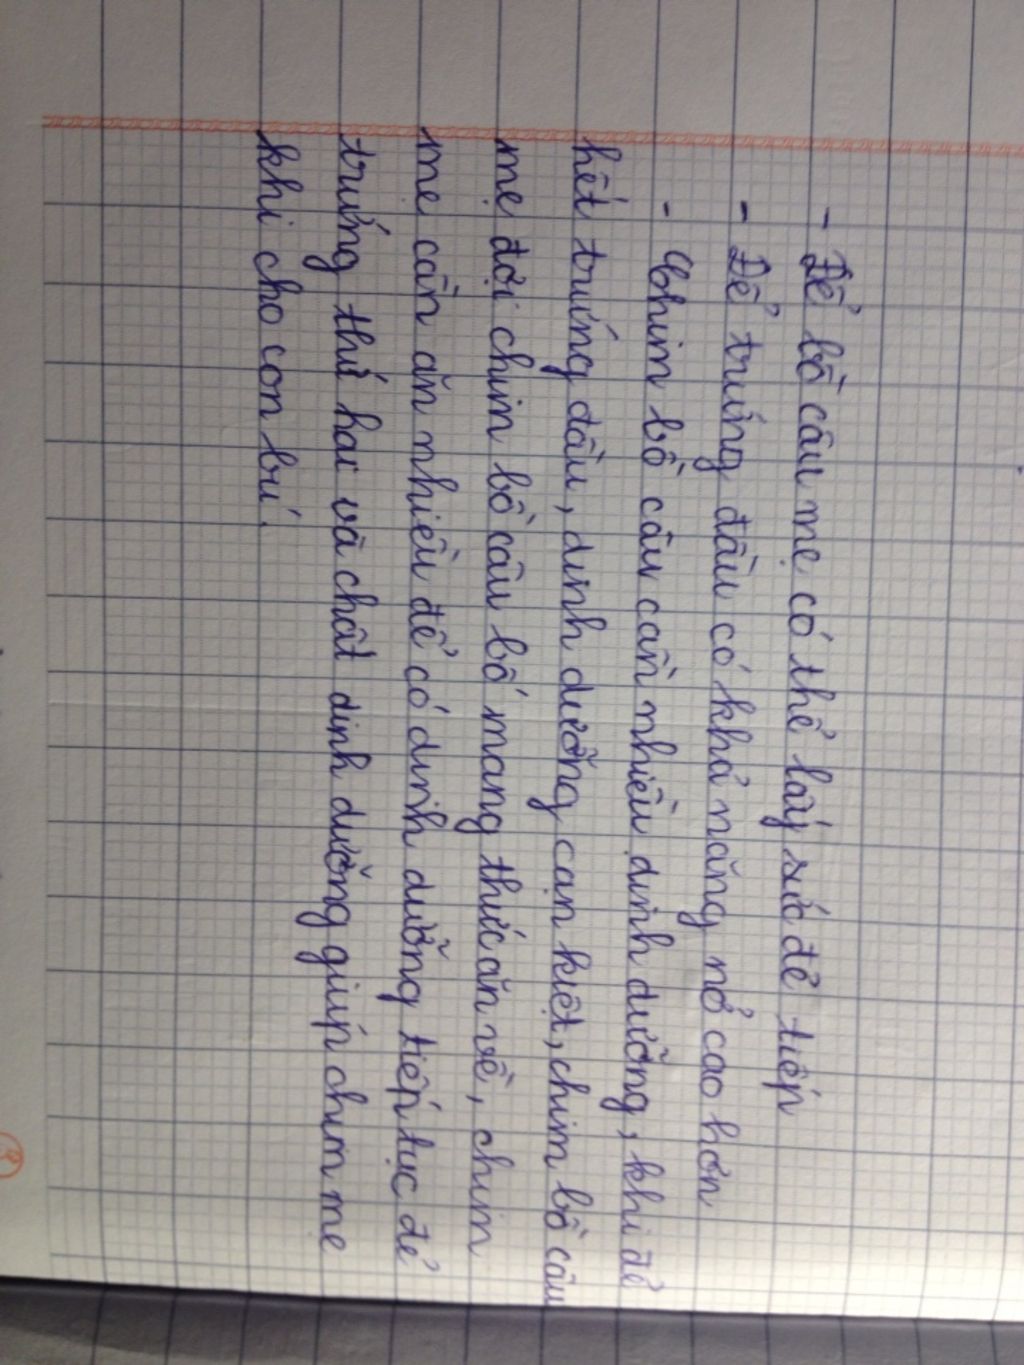 - Để bồ câu mẹ có thể lấy sức đẻ tiếp
- Để trứng đầu có khả năng nở cao hơn
- Chim bồ câu cần nhiều dinh dưỡng, khi đẻ
hết trứng đầu, dinh dưỡng cạn kiệt, chim bồ câu
mẹ đợi chim bồ câu bố mang thức ăn về, chim
mẹ cần ăn nhiều để có dinh dưỡng tiếp tục đẻ
trứng thứ hai và chất dinh dưỡng giúp chim mẹ
khi cho con bú.